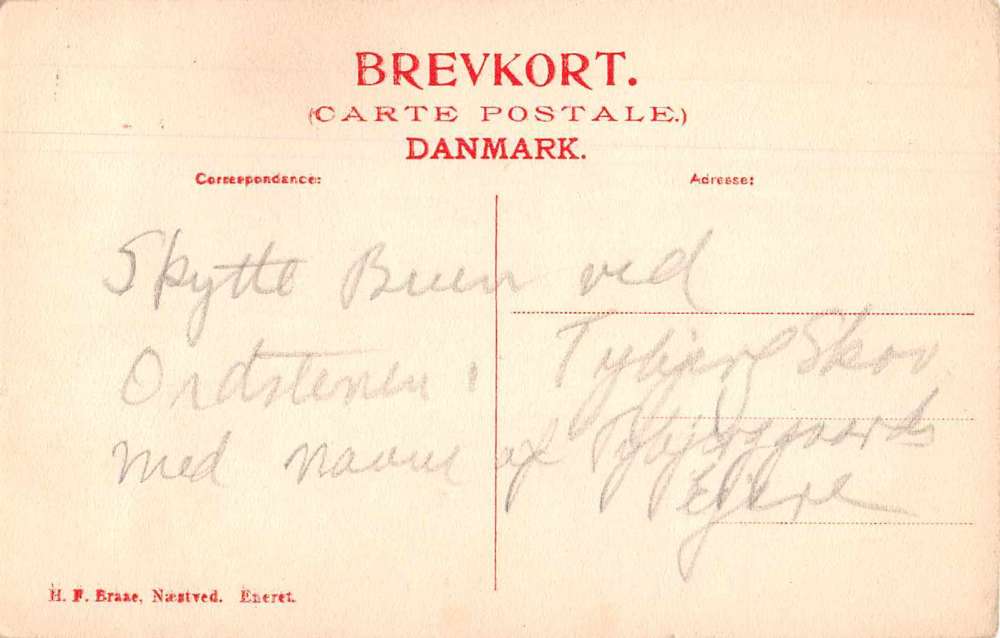 BREVKORT.
(CARTE POSTALE.)
DANMARK.
Correspondance:
Adresse:
Skytte Buen ved
Ordstenen i Tybjerg Skov
med navne af Tybjerggaards
Ejere
H. F. Braae, Næstved. Eneret.